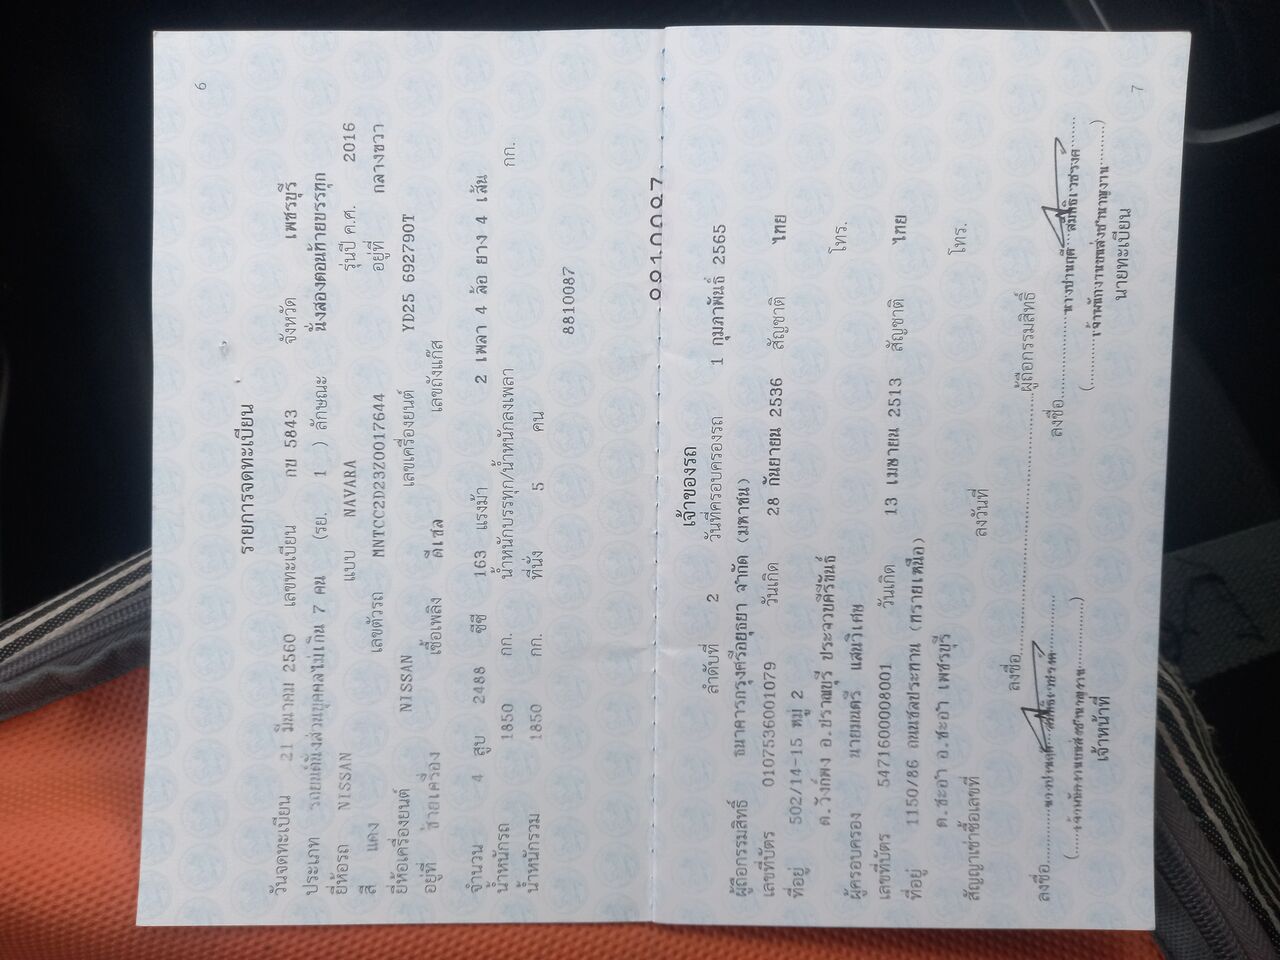 6
รายการจดทะเบียน
วันจดทะเบียน 21 มีนาคม 2560 เลขทะเบียน กข 5843 จังหวัด เพชรบุรี
ประเภท รถยนต์นั่งส่วนบุคคลไม่เกิน 7 คน (รย. 1 ) ลักษณะ นั่งสองตอนท้ายบรรทุก
ยี่ห้อรถ NISSAN แบบ NAVARA รุ่นปี ค.ศ. 2016
สี แดง เลขตัวรถ MNTCC2D23Z0017644 อยู่ที่ กลางขวา
ยี่ห้อเครื่องยนต์ NISSAN เลขเครื่องยนต์ YD25 692790T
อยู่ที่ ซ้ายเครื่อง เชื้อเพลิง ดีเซล เลขถังแก๊ส
จำนวน 4 สูบ 2488 ซีซี 163 แรงม้า 2 เพลา 4 ล้อ ยาง 4 เส้น
น้ำหนักรถ 1850 กก. น้ำหนักบรรทุก/น้ำหนักลงเพลา กก.
น้ำหนักรวม 1850 กก. ที่นั่ง 5 คน
8810087
เจ้าของรถ
ลำดับที่ 2 วันที่ครอบครองรถ 1 กุมภาพันธ์ 2565
ผู้ถือกรรมสิทธิ์ ธนาคารกรุงศรีอยุธยา จำกัด (มหาชน)
เลขที่บัตร 0107536001079 วันเกิด 28 กันยายน 2536 สัญชาติ ไทย
ที่อยู่ 502/14-15 หมู่ 2
ต.วังก์พง อ.ปราณบุรี ประจวบคีรีขันธ์ โทร.
ผู้ครอบครอง นายมนตรี แสนวิเศษ
เลขที่บัตร 5471600008001 วันเกิด 13 เมษายน 2513 สัญชาติ ไทย
ที่อยู่ 1150/86 ถนนชลประทาน (ทรายเหนือ)
ต.ชะอำ อ.ชะอำ เพชรบุรี โทร.
สัญญาเช่าซื้อเลขที่ ลงวันที่
ลงชื่อ ผู้ถือกรรมสิทธิ์
ลงชื่อ ลงชื่อ
(เจ้าพนักงานขนส่งชำนาญงาน) (เจ้าพนักงานขนส่งชำนาญงาน)
เจ้าหน้าที่ นายทะเบียน
7